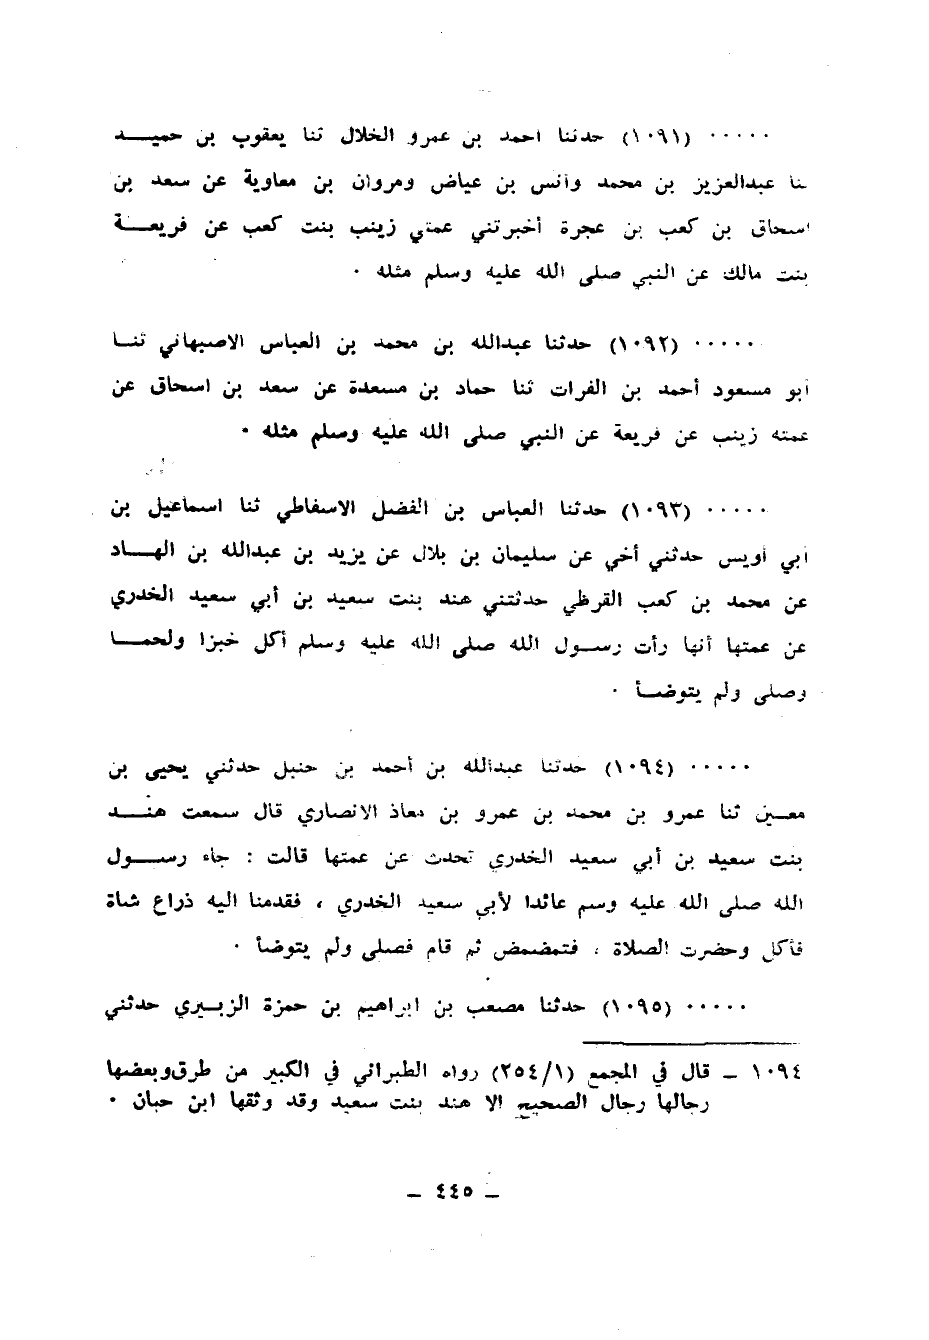 ٠٠٠٠٠ (١٠٩١) حدثنا احمد بن عمرو الخلال ثنا يعقوب بن حميد
ثنا عبدالعزيز بن محمد وأنس بن عياض ومروان بن معاوية عن سعد بن
اسحاق بن كعب بن عجرة أخبرتني عمتي زينب بنت كعب عن فريعة
بنت مالك عن النبي صلى الله عليه وسلم مثله ٠
٠٠٠٠٠ (١٠٩٢) حدثنا عبدالله بن محمد بن العباس الاصبهاني ثنا
أبو مسعود أحمد بن الفرات ثنا حماد بن مسعدة عن سعد بن اسحاق عن
عمته زينب عن فريعة عن النبي صلى الله عليه وسلم مثله ٠
٠٠٠٠٠ (١٠٩٣) حدثنا العباس بن الفضل الاسفاطي ثنا اسماعيل بن
أبي أويس حدثني أخي عن سليمان بن بلال عن يزيد بن عبدالله بن الهاد
عن محمد بن كعب القرظي حدثتني هند بنت سعيد بن أبي سعيد الخدري
عن عمتها أنها رأت رسول الله صلى الله عليه وسلم أكل خبزا ولحما
وصلى ولم يتوضأ ٠
٠٠٠٠٠ (١٠٩٤) حدثنا عبدالله بن أحمد بن حنبل حدثني يحيى بن
معين ثنا عمرو بن محمد بن عمرو بن معاذ الانصاري قال سمعت هند
بنت سعيد بن أبي سعيد الخدري تحدث عن عمتها قالت : جاء رسول
الله صلى الله عليه وسم عائدا لأبي سعيد الخدري ، فقدمنا اليه ذراع شاة
فأكل وحضرت الصلاة ، فتمضمض ثم قام فصلى ولم يتوضأ ٠
٠٠٠٠٠ (١٠٩٥) حدثنا مصعب بن ابراهيم بن حمزة الزبيري حدثني
١٠٩٤ ـ قال في المجمع (٢٥٤/١) رواه الطبراني في الكبير من طرق وبعضها
رجالها رجال الصحيح الا هند بنت سعيد وقد وثقها ابن حبان ٠
ـ ٤٤٥ ـ